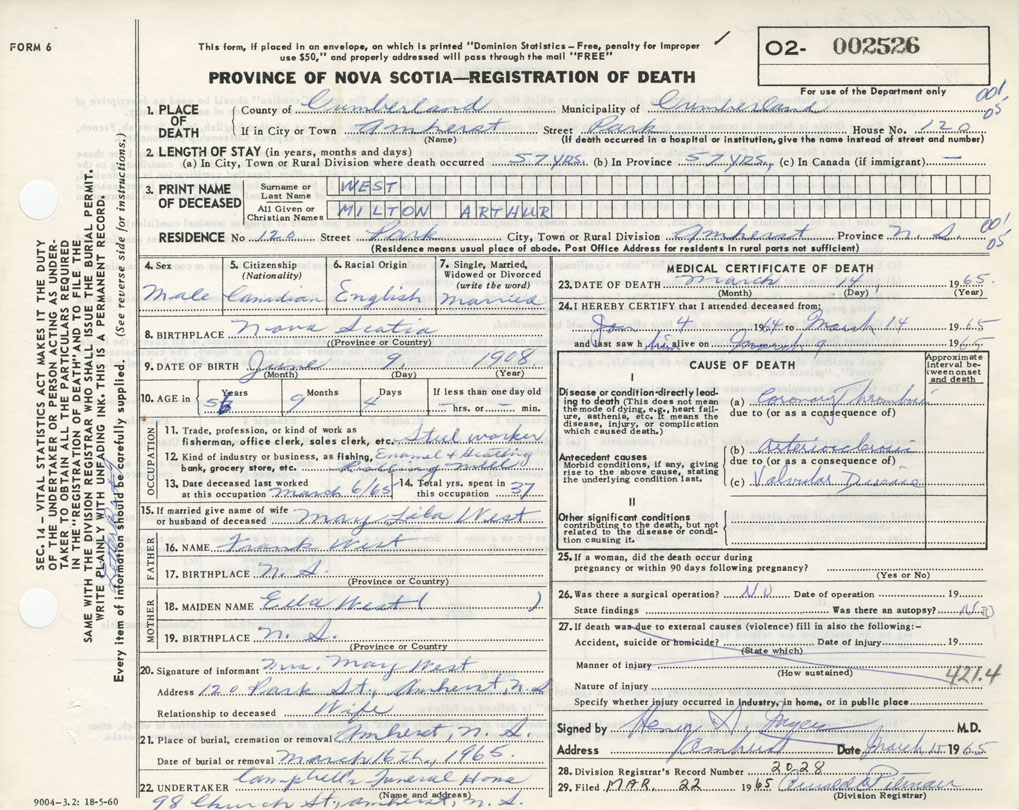 FORM 6
This form, if placed in an envelope, on which is printed "Dominion Statistics – Free, penalty for improper
use $50," and properly addressed will pass through the mail "FREE"
O2- 002526
For use of the Department only
PROVINCE OF NOVA SCOTIA—REGISTRATION OF DEATH
001
05
1. PLACE OF DEATH
County of Cumberland Municipality of Cumberland
If in City or Town Amherst Street Park House No. 120
(Name) (If death occurred in a hospital or institution, give the name instead of street and number)
2. LENGTH OF STAY (in years, months and days)
(a) In City, Town or Rural Division where death occurred 57 YRS. (b) In Province 57 YRS, (c) In Canada (if immigrant) —
3. PRINT NAME OF DECEASED
Surname or Last Name WEST
All Given or Christian Names MILTON ARTHUR
RESIDENCE No 120 Street Park City, Town or Rural Division Amherst Province N. S 001 05
(Residence means usual place of abode. Post Office Address for residents in rural parts not sufficient)
4. Sex Male
5. Citizenship (Nationality) Canadian
6. Racial Origin English
7. Single, Married, Widowed or Divorced (write the word) Married
8. BIRTHPLACE Nova Scotia
(Province or Country)
9. DATE OF BIRTH June 9, 1908
(Month) (Day) (Year)
10. AGE in Years 56 Months 9 Days 4 If less than one day old
hrs. or min.
OCCUPATION
11. Trade, profession, or kind of work as
fisherman, office clerk, sales clerk, etc. Steel worker
12. Kind of industry or business, as fishing, Enamel & Heating
bank, grocery store, etc. Rolling Mill
13. Date deceased last worked
at this occupation March 6/65
14. Total yrs. spent in
this occupation 37
15. If married give name of wife
or husband of deceased May Lila West
FATHER
16. NAME Frank West
17. BIRTHPLACE N. S.
(Province or Country)
MOTHER
18. MAIDEN NAME Ella West ( )
19. BIRTHPLACE N. S.
(Province or Country
20. Signature of informant Mrs. May West
Address 120 Park St., Amherst, N. S
Relationship to deceased Wife
21. Place of burial, cremation or removal Amherst, N. S.
Date of burial or removal March 16th, 1965
22. UNDERTAKER Campbell's Funeral Home
(Name and address)
98 Church St., Amherst, N. S.
9004-3.2: 18-5-60
MEDICAL CERTIFICATE OF DEATH
23. DATE OF DEATH March 14, 1965
(Month) (Day) (Year)
24. I HEREBY CERTIFY that I attended deceased from:
Jan 4 1964 to March 14 1965
and last saw him alive on March 9 1965
CAUSE OF DEATH
Approximate interval between onset and death
I
Disease or condition directly leading to death (This does not mean the mode of dying, e.g., heart failure, asthenia, etc. It means the disease, injury, or complication which caused death.)
(a) Coronary Thrombosis
due to (or as a consequence of)
Antecedent causes
Morbid conditions, if any, giving rise to the above cause, stating the underlying condition last.
(b) Arteriosclerosis
due to (or as a consequence of)
(c) Valvular Disease
II
Other significant conditions
contributing to the death, but not related to the disease or condition causing it.
25. If a woman, did the death occur during
pregnancy or within 90 days following pregnancy?
(Yes or No)
26. Was there a surgical operation? NO Date of operation 19
State findings Was there an autopsy? NO
27. If death was due to external causes (violence) fill in also the following:-
Accident, suicide or homicide? Date of injury 19
(State which)
Manner of injury
(How sustained)
421.4
Nature of injury
Specify whether injury occurred in industry, in home, or in public place
Signed by Henry A. M.D.
Address Amherst Date March 15 1965
28. Division Registrar's Record Number 2028
29. Filed MAR. 22 1965 Pitman
(Division Registrar)
SEC. 14 – VITAL STATISTICS ACT MAKES IT THE DUTY
OF THE UNDERTAKER OR PERSON ACTING AS UNDER-
TAKER TO OBTAIN ALL THE PARTICULARS REQUIRED
IN THE "REGISTRATION OF DEATH" AND TO FILE THE
SAME WITH THE DIVISION REGISTRAR WHO SHALL ISSUE THE BURIAL PERMIT.
WRITE PLAINLY WITH UNFADING INK. THIS IS A PERMANENT RECORD.
Every item of information should be carefully supplied. (See reverse side for instructions.)